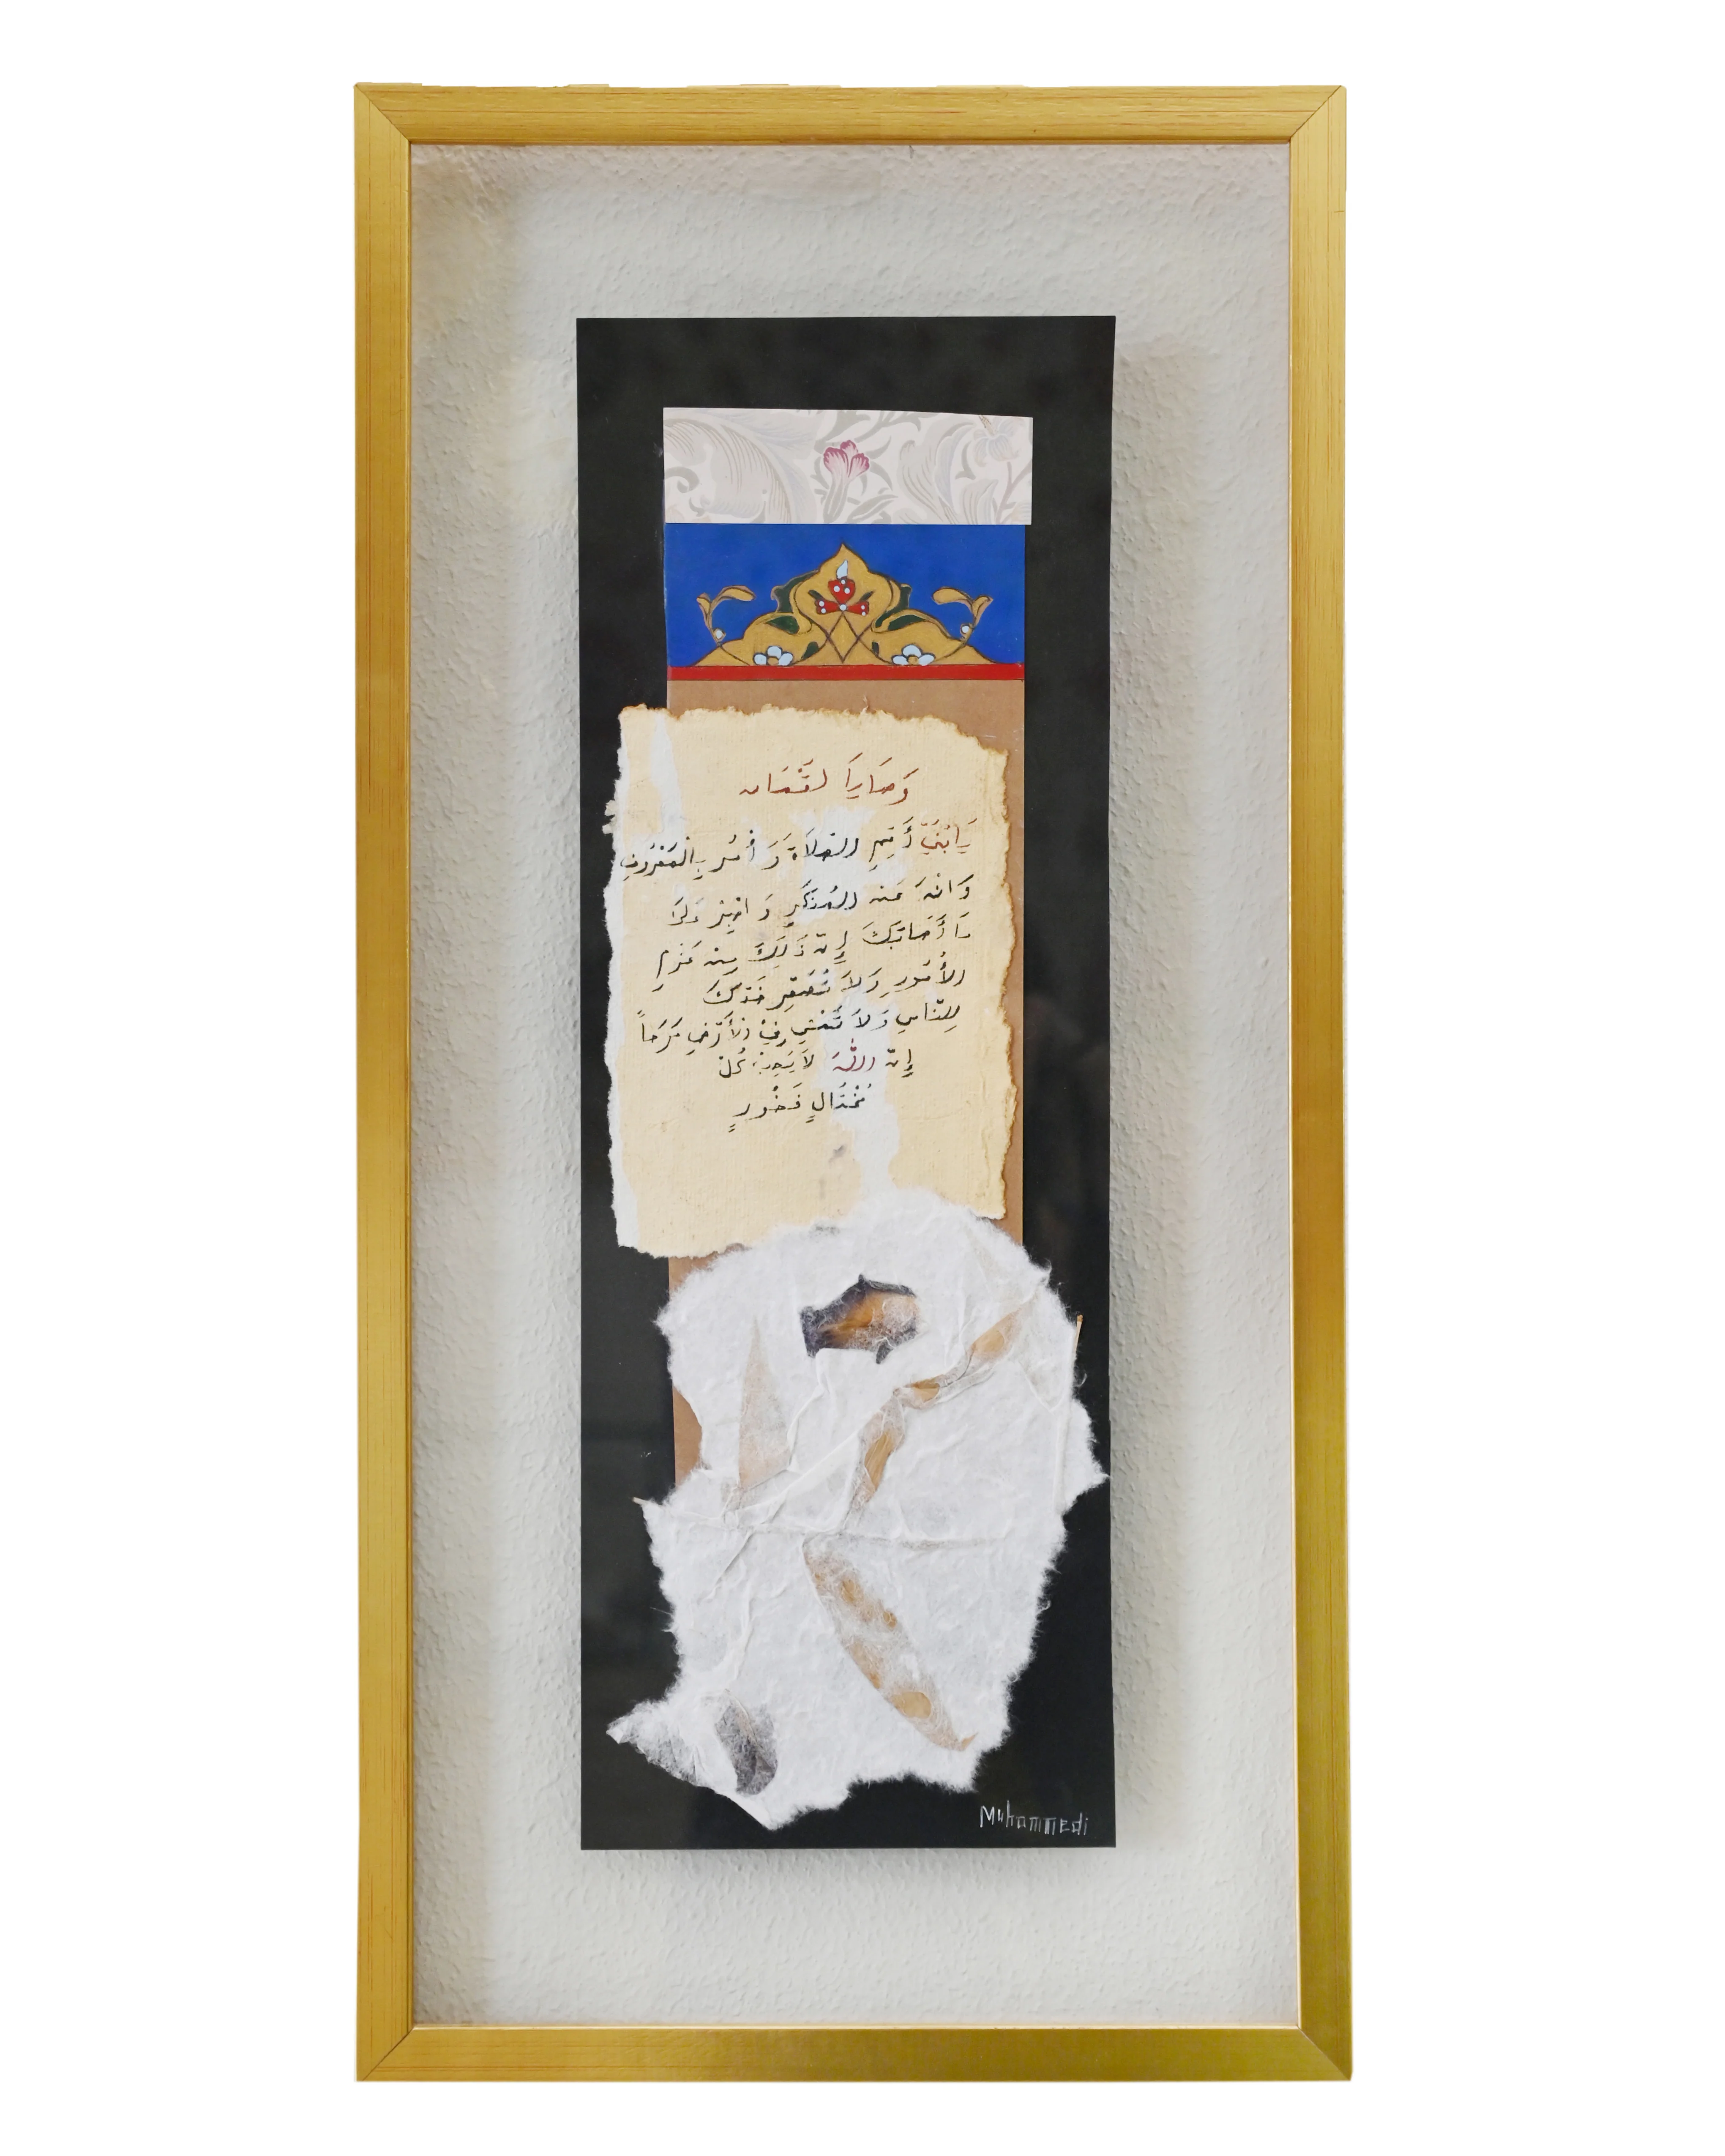 وَصَايَا لُقْمَان
يَابُنَيَّ أَقِمِ الصَّلَاةَ وَأْمُر بِالْمَعْرُوفِ
وَانْهَ عَنِ المُنكَرِ وَاصْبِرْ عَلَىٰ
مَا أَصَابَكَ إِنَّ ذَلِكَ مِنْ عَزْمِ
الأُمُورِ وَلَا تُصَعِّرْ خَدَّكَ
لِلنَّاسِ وَلَا تَمْشِ فِيْ الْأَرْضِ مَرَحاً
إِنَّ اللَّهَ لَا يُحِبُّ كُلَّ
مُخْتَالٍ فَخُورٍ
Muhammedi